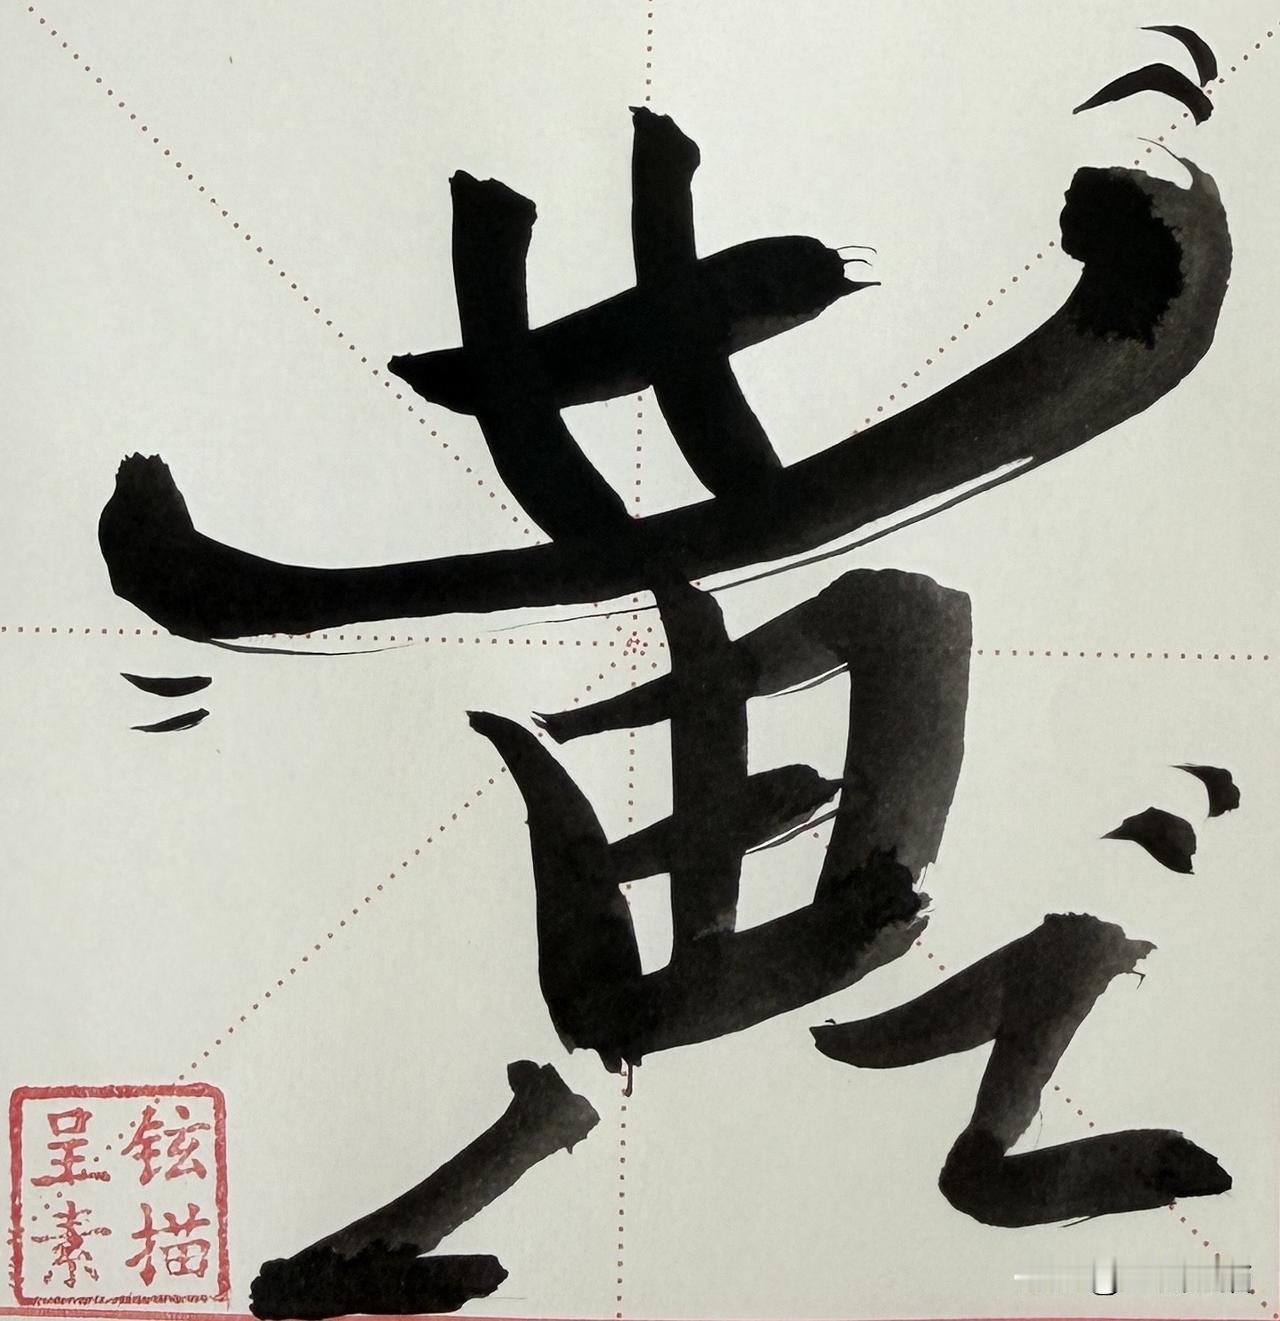 黄
铉描
呈素